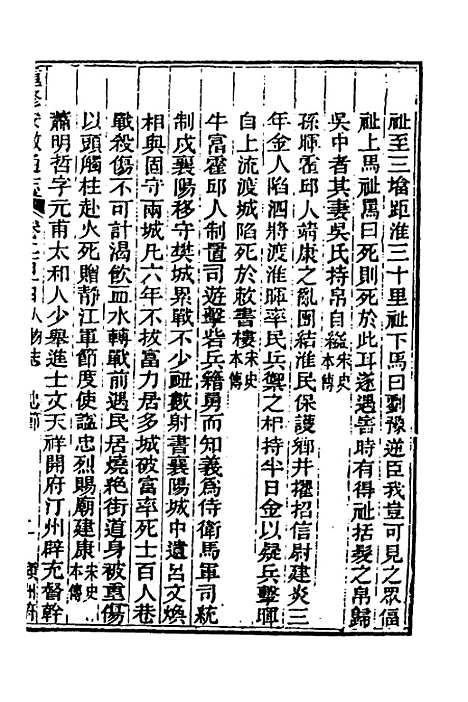 祉至三塔距淮三十里祉下馬曰劉豫逆臣我豈可見之眾偪
祉上馬祉罵曰死則死於此耳遂遇害時有得祉括髮之帛歸
吳中者其妻吳氏持帛自縊宋史本傳
孫暉霍邱人靖康之亂團結淮民保護鄉井擢招信尉建炎三
年金人陷泗將渡淮暉率民兵禦之相持半日金以疑兵擊暉
自上流渡城陷死於敕書樓宋史本傳
牛富霍邱人制置司遊擊砦兵籍勇而知義為侍衛馬軍司統
制戍襄陽移守樊城累戰不少衂數射書襄陽城中遺呂文煥
相與固守兩城凡六年不拔富力居多城破富率死士百人巷
戰殺傷不可計渴飲血水轉戰前遇民居燒絶街道身被重傷
以頭觸柱赴火死贈靜江軍節度使諡忠烈賜廟建康宋史本傳
蕭明哲字元甫太和人少舉進士文天祥開府汀州辟充督幹
重修安徽通志 卷二百 人物志 忠節 一 潁州府